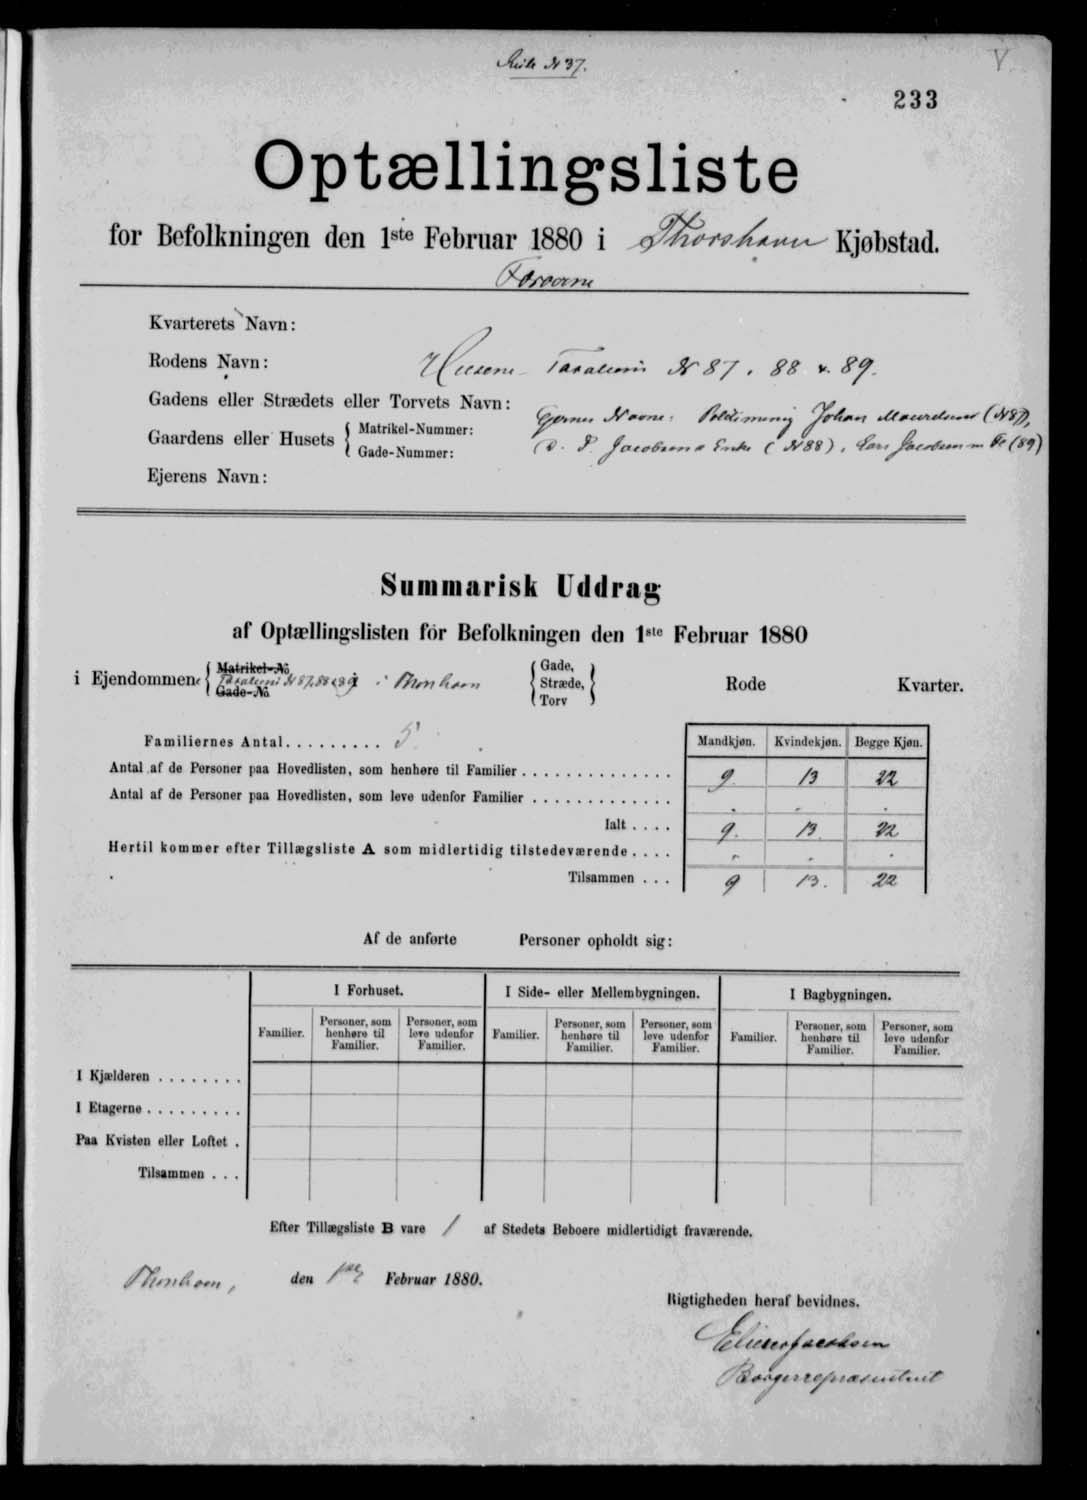 № 37.
233
Optællingsliste
for Befolkningen den 1ste Februar 1880 i Thorshavn Kjøbstad.
Færøerne
Kvarterets Navn:
Rodens Navn:
Husene Taxations № 87, 88 & 89.
Gadens eller Strædets eller Torvets Navn:
Gaardens eller Husets { Matrikel-Nummer:
Gade-Nummer:
Ejernes Navne: Johan Mouridsens (№ 87),
D. P. Jacobsens Enke (№ 88), Lars Jacobsen (89)
Ejerens Navn:
Summarisk Uddrag
af Optællingslisten for Befolkningen den 1ste Februar 1880
i Ejendommene { Matrikel-№ Taxations № 87, 88 & 89 Gade-№ i Thorshavn { Gade, Stræde, Torv } Rode Kvarter.
Mandkjøn. Kvindekjøn. Begge Kjøn.
Familiernes Antal......... 5.
Antal af de Personer paa Hovedlisten, som henhøre til Familier............... 9. 13 22
Antal af de Personer paa Hovedlisten, som leve udenfor Familier............. " " "
Ialt.... 9. 13 22
Hertil kommer efter Tillægsliste A som midlertidig tilstedeværende.... " " "
Tilsammen... 9 13. 22
Af de anførte Personer opholdt sig:
I Forhuset. I Side- eller Mellembygningen. I Bagbygningen.
Familier. Personer, som henhøre til Familier. Personer, som leve udenfor Familier. Familier. Personer, som henhøre til Familier. Personer, som leve udenfor Familier. Familier. Personer, som henhøre til Familier. Personer, som leve udenfor Familier.
I Kjælderen........
I Etagerne.........
Paa Kvisten eller Loftet.
Tilsammen...
Efter Tillægsliste B vare 1 af Stedets Beboere midlertidigt fraværende.
Thorshavn, den Februar 1880.
Rigtigheden heraf bevidnes.
Jacobsen
Borgerrepræsentant